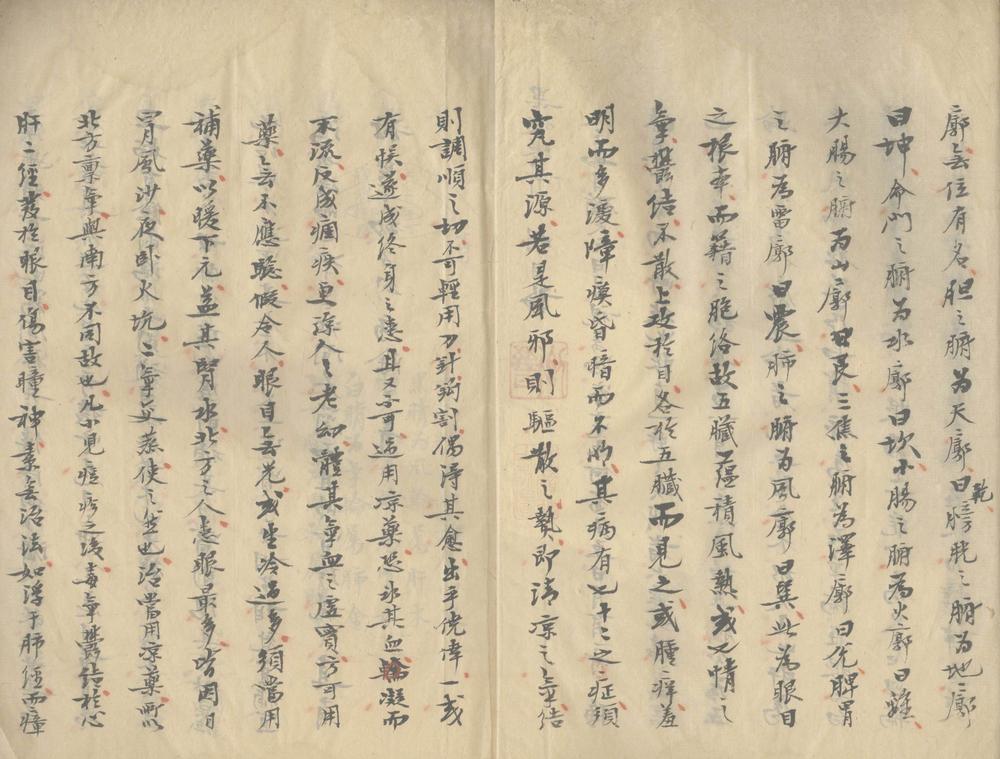 廓無位有名胆之腑为天廓曰乾膀胱之腑为地廓
曰坤命門之腑为水廓曰坎小腸之腑為火廓曰離
大腸之腑为山廓曰艮三焦之腑為澤廓曰兑脾胃
之腑為雷廓曰震肺之腑為風廓曰巽此為眼目
之根本而籍之胞络故五臟蕴積風熱或七情之
氣欝结不散上攻扵目各扵五臟而見之或腫痒羞
明而多淚障瘼昏暗而不明其病有七十二之症須
究其源若是風邪則驅散之熱即清凉之氣结
則調順之切不可輕用刀針鈎割偶淂其愈出乎侥倖一或
有悮遂成终身之患且又不可过用凉藥恐氷其血凝而
不流反成痼疾更詳人之老幼體其氣血之虚實方可用
藥無不應驗假令人眼目無光或生冷过多須當用
補藥以暖下元益其腎水北方之人患眼最多皆因日
冒風沙夜卧火坑二氣交蒸使之然也治當用凉藥所以
北方禀氣與南方不同故也凡小児痘疹之後毒氣欝结扵心
肝二經发扵眼目傷害瞳神素無治法如浮于肺經而瘴